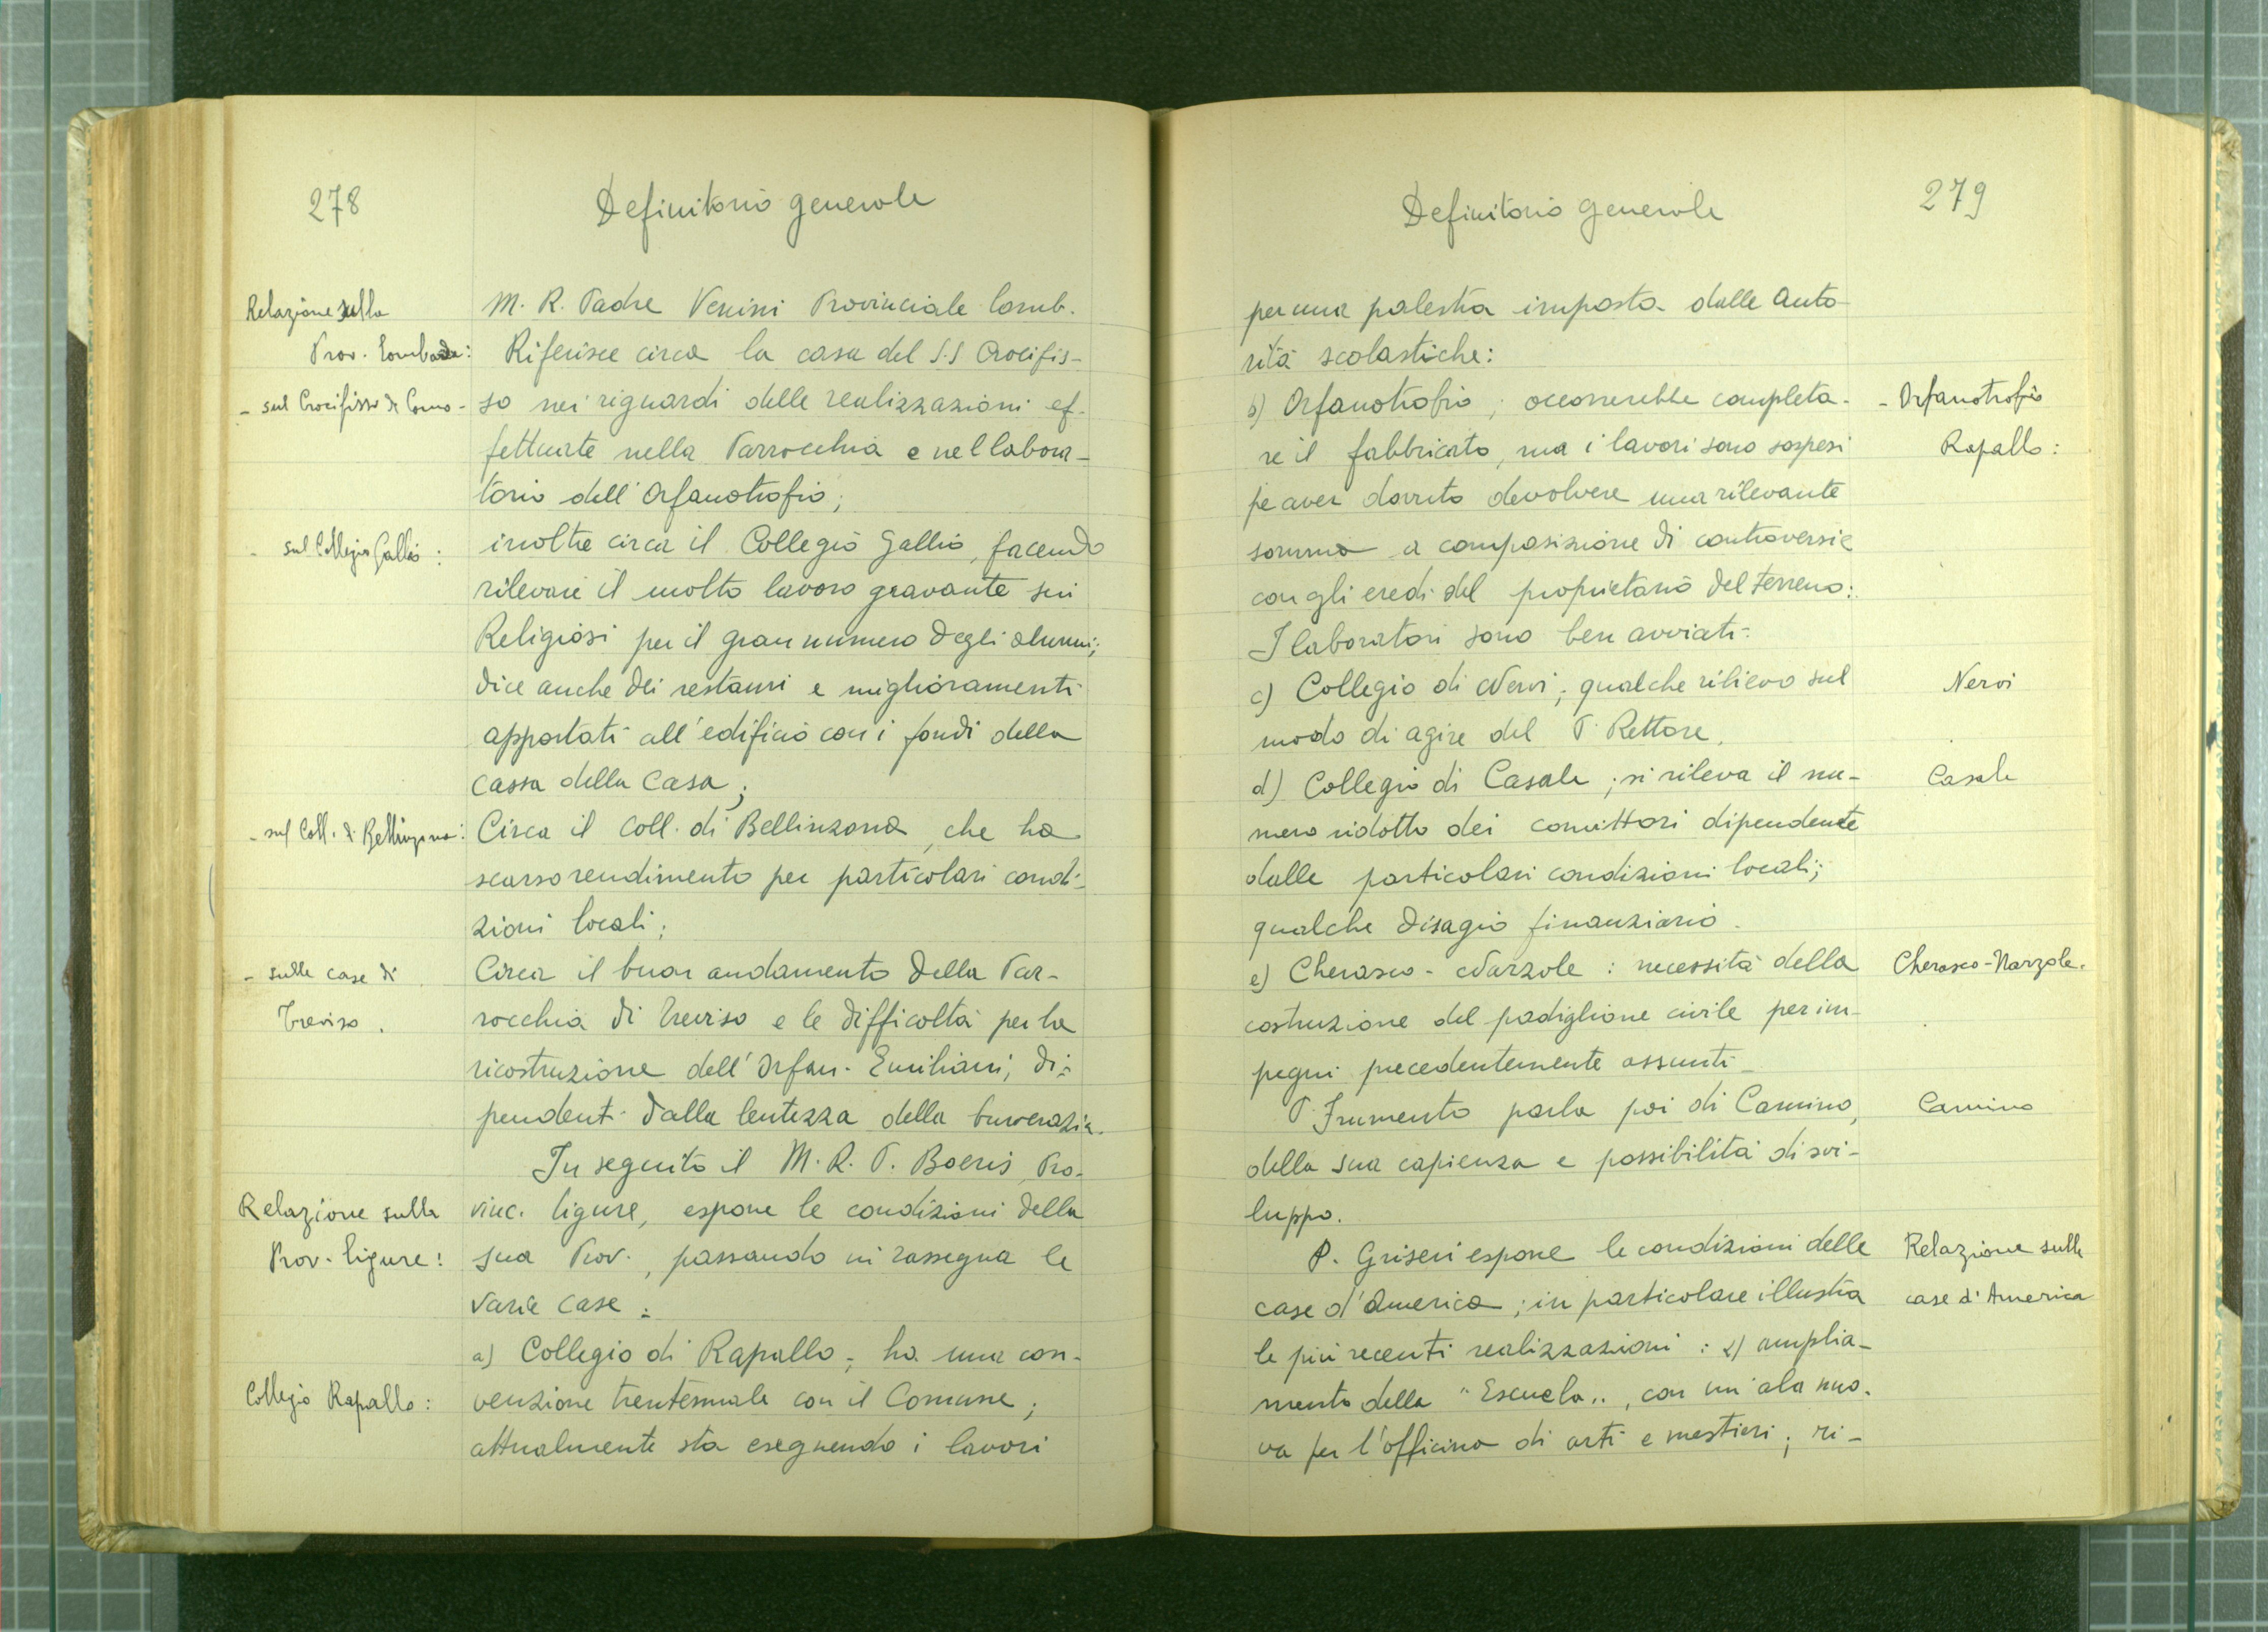 278
Definitorio generale
Relazione sulla
Prov. Lombarda:
- sul Crocifisso di Como -
- sul Collegio Gallio :
- sul Coll. di Bellinzona:
- sulle case di
Treviso.
Relazione sulla
Prov. Ligure:
Collegio Rapallo:
M. R. Padre Venini Provinciale lomb.
Riferisce circa la casa del S.S Crocifis-
so nei riguardi delle realizzazioni ef-
fettuate nella Parrocchia e nel labora-
torio dell'Orfanotrofio;
inoltre circa il Collegio Gallio, facendo
rilevare il molto lavoro gravante sui
Religiosi per il gran numero degli alunni;
dice anche dei restauri e miglioramenti
apportati all'edificio con i fondi della
cassa della Casa;
Circa il Coll. di Bellinzona, che ha
scarso rendimento per particolari condi-
zioni locali;
Circa il buon andamento della Par-
rocchia di Treviso e le difficoltà per la
ricostruzione dell'Orfan. Emiliani, di-
pendenti dalla lentezza della burocrazia.
In seguito il M. R. P. Boeris, Pro-
vinc. ligure, espone le condizioni della
sua Prov., passando in rassegna le
varie case:
a) Collegio di Rapallo; ha una con-
venzione trentennale con il Comune;
attualmente sta eseguendo i lavori
Definitorio generale
279
per una palestra imposta dalle Auto-
rità scolastiche:
b) Orfanotrofio; occorrerebbe completa-
re il fabbricato, ma i lavori sono sospesi
pe aver dovuto devolvere una rilevante
somma a composizione di controversie
con gli eredi del proprietario del terreno:
I laboratori sono ben avviati.
c) Collegio di Nervi; qualche rilievo sul
modo di agire del P. Rettore.
d) Collegio di Casale; si rileva il nu-
mero ridotto dei convittori dipendente
dalle particolari condizioni locali;
qualche disagio finanziario.
e) Cherasco - Narzole : necessità della
costruzione del padiglione civile per im-
pegni precedentemente assunti.
P. Frumento parla poi di Camino,
della sua capienza e possibilità di svi-
luppo.
P. Griseri espone le condizioni delle
case d'America; in particolare illustra
le più recenti realizzazioni : 1) amplia-
mento della "Escuela", con un'ala nuo-
va per l'officina di arti e mestieri; ri-
- Orfanotrofio
Rapallo:
Nervi
Casale
Cherasco-Narzole.
Camino
Relazione sulle
case d'America